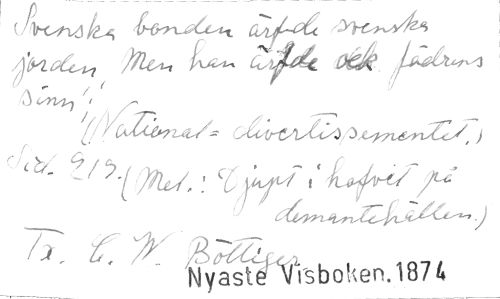 Svenska bonden ärfde svenska
jorden, Men han ärfde ock fädrens
sinn";
(National=divertissementet.)
Sid. 219. (Mel.: Djupt i hafvet på
demantehällen.)
Tx. C. W. Böttiger
Nyaste Visboken. 1874